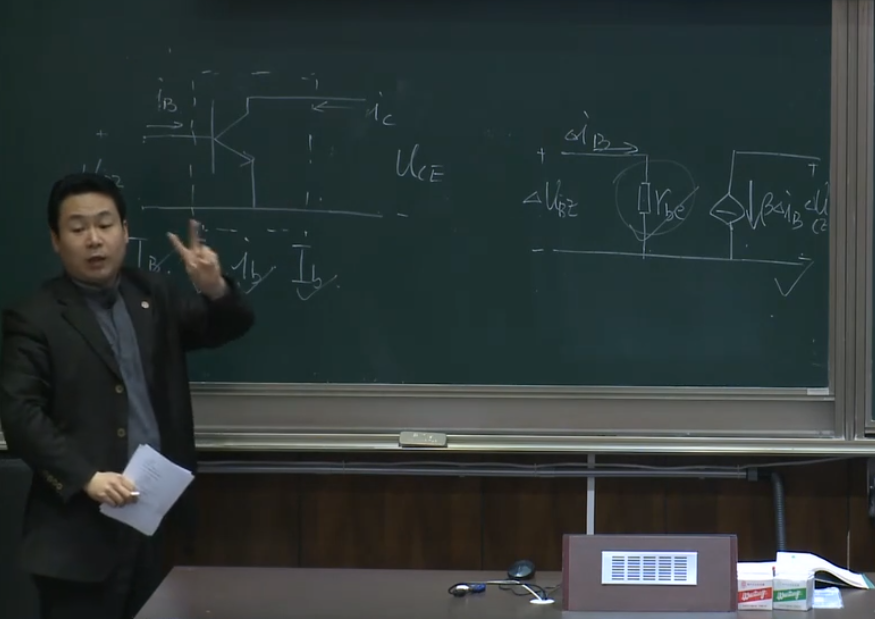 i_B
i_C
+
U_CE
-
I_B
i_b
I_b
Δi_B
+
ΔU_BE
r_be
βΔi_B
+
-